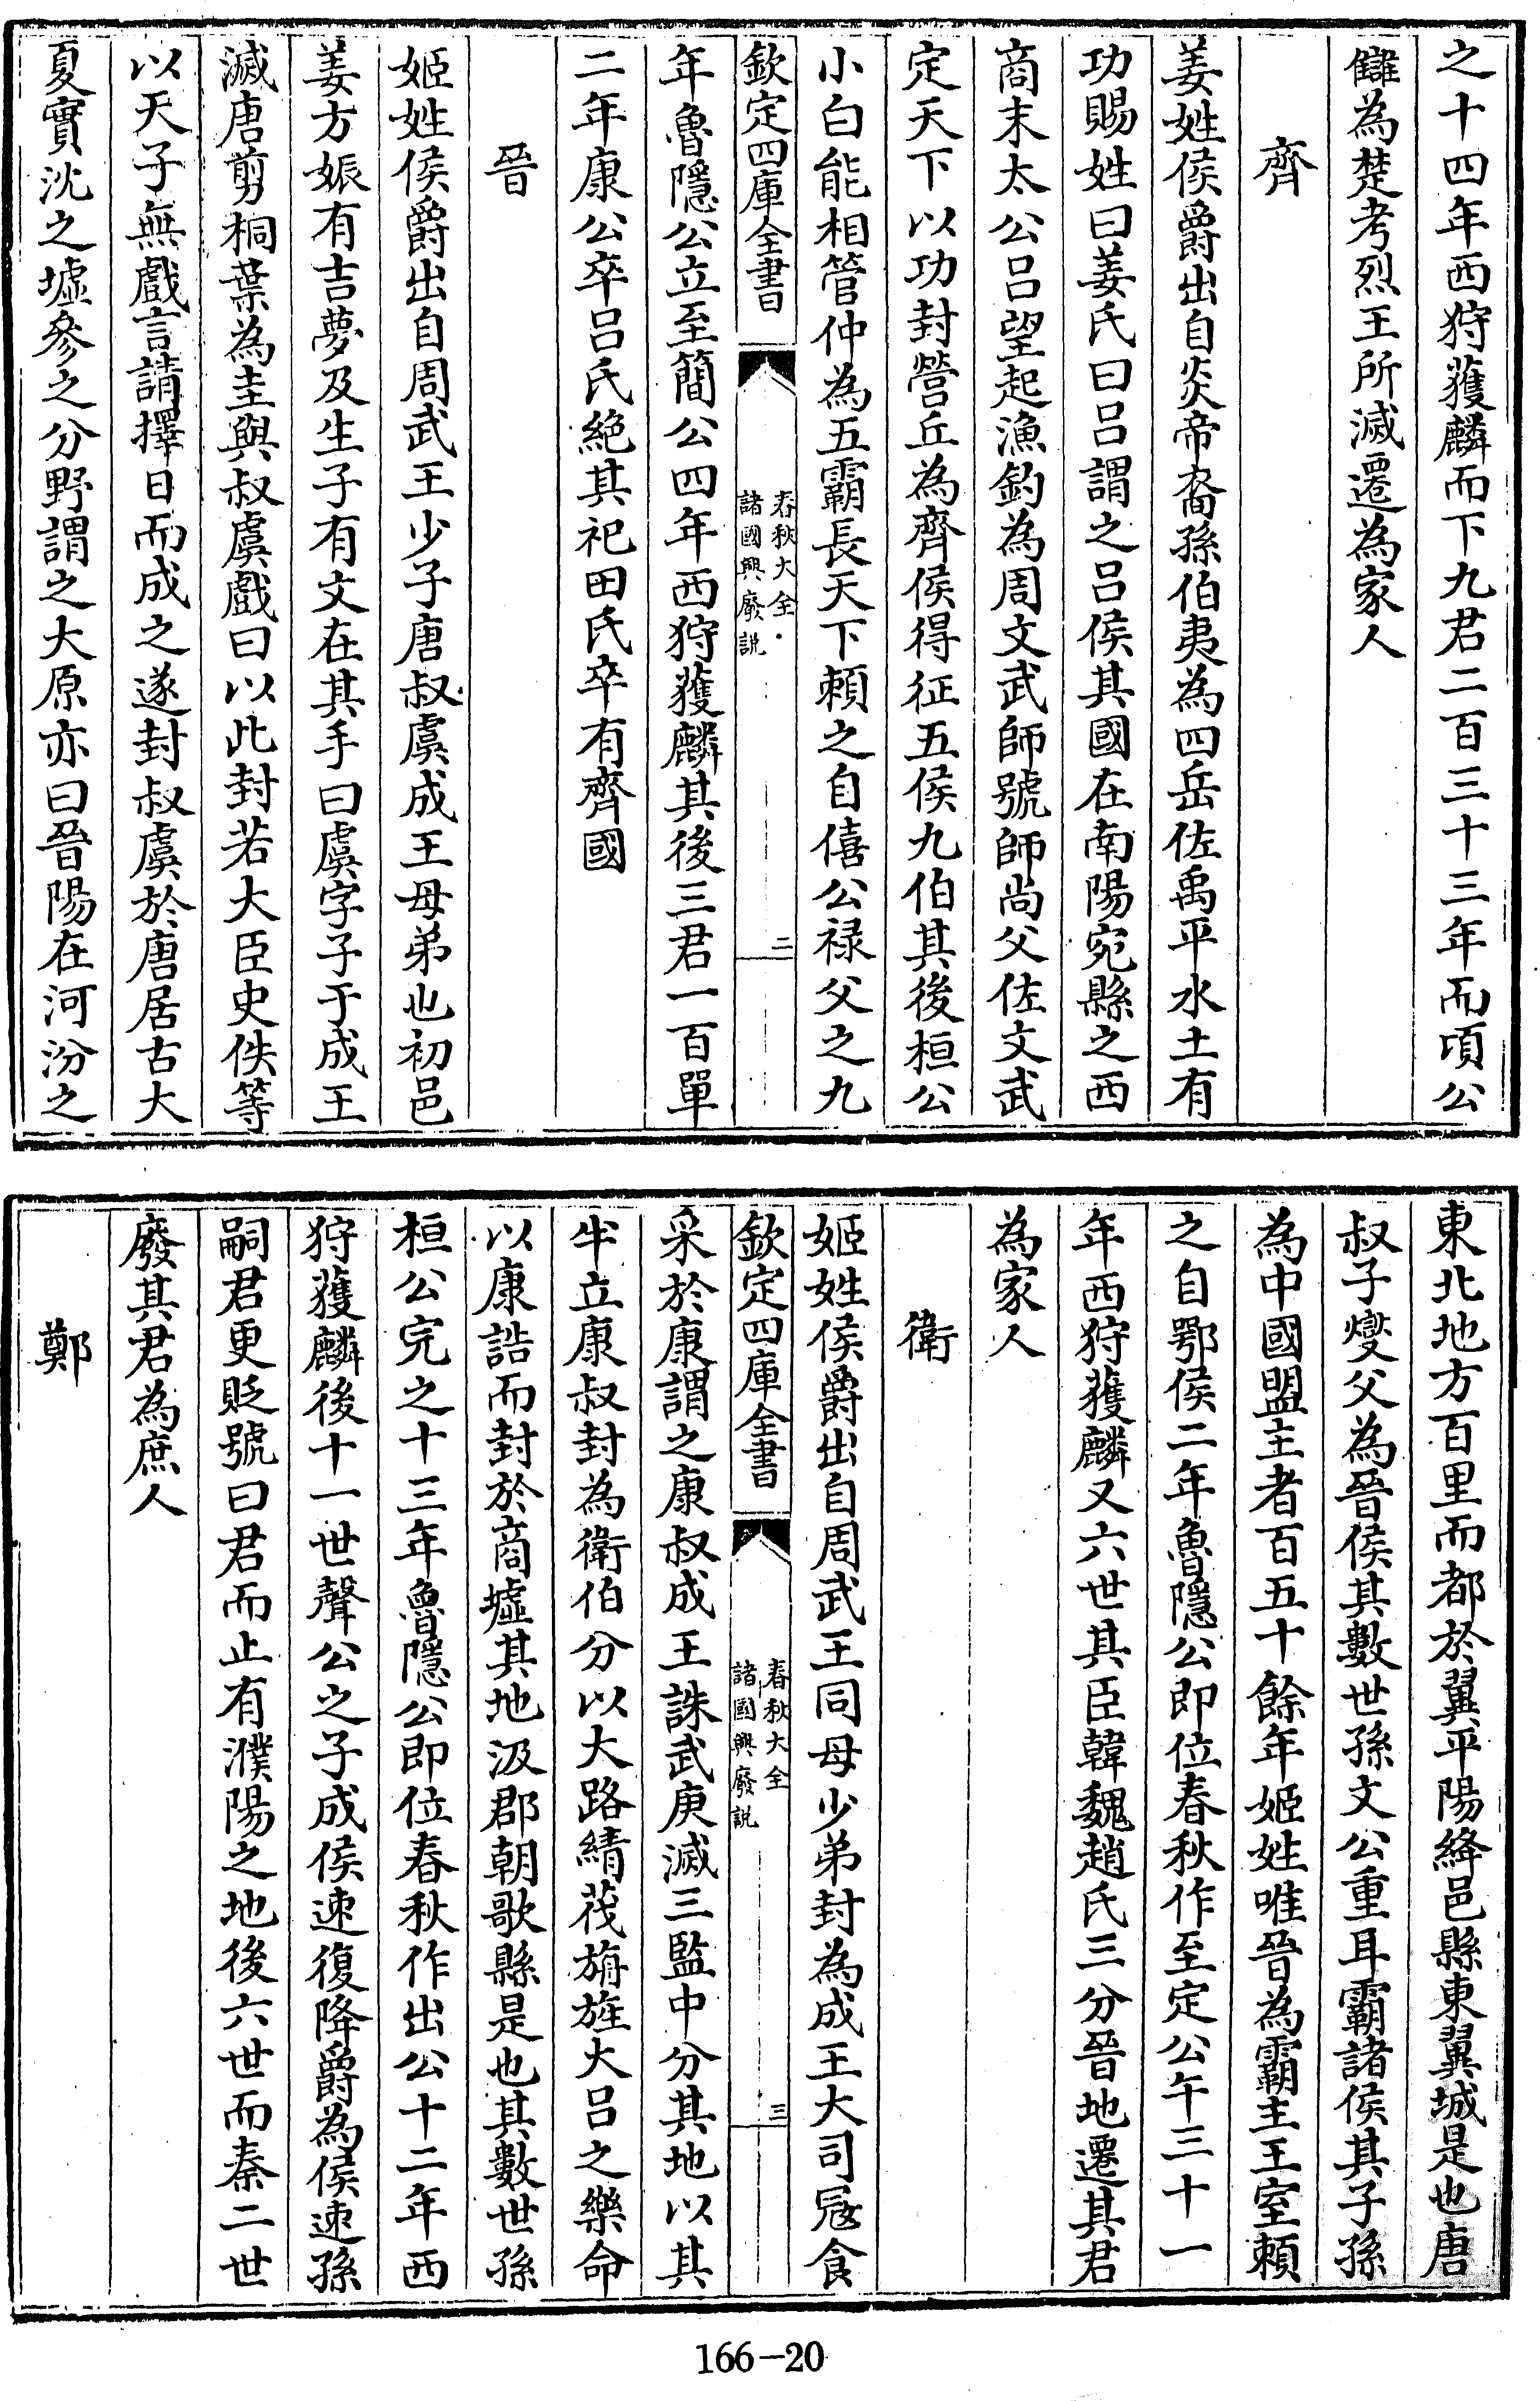 之十四年西狩獲麟而下九君二百三十三年而頃公
讎為楚考烈王所滅遷為家人
齊
姜姓侯爵出自炎帝裔孫伯夷為四岳佐禹平水土有
功賜姓曰姜氏曰吕謂之吕侯其國在南陽宛縣之西
商末太公吕望起漁釣為周文武師號師尚父佐文武
定天下以功封營丘為齊侯得征五侯九伯其後桓公
小白能相管仲為五霸長天下頼之自僖公禄父之九
欽定四庫全書
春秋大全
諸國興廢説
二
年魯隱公立至簡公四年西狩獲麟其後三君一百單
二年康公卒吕氏絶其祀田氏卒有齊國
晉
姬姓侯爵出自周武王少子唐叔虞成王母弟也初邑
姜方娠有吉夢及生子有文在其手曰虞字子于成王
滅唐剪桐葉為圭與叔虞戲曰以此封若大臣史佚等
以天子無戲言請擇日而成之遂封叔虞於唐居古大
夏實沈之墟參之分野謂之大原亦曰晉陽在河汾之
東北地方百里而都於翼平陽絳邑縣東翼城是也唐
叔子燮父為晉侯其數世孫文公重耳霸諸侯其子孫
為中國盟主者百五十餘年姬姓唯晉為霸主王室頼
之自鄂侯二年魯隱公即位春秋作至定公午三十一
年西狩獲麟又六世其臣韓魏趙氏三分晉地遷其君
為家人
衛
姬姓侯爵出自周武王同母少弟封為成王大司冦食
欽定四庫全書
春秋大全
諸國興廢説
三
采於康謂之康叔成王誅武庚滅三監中分其地以其
半立康叔封為衛伯分以大路綪茷旃旌大吕之樂命
以康誥而封於商墟其地汲郡朝歌縣是也其數世孫
桓公完之十三年魯隱公即位春秋作出公十二年西
狩獲麟後十一世聲公之子成侯速復降爵為侯速孫
嗣君更貶號曰君而止有濮陽之地後六世而秦二世
廢其君為庶人
鄭
166-20